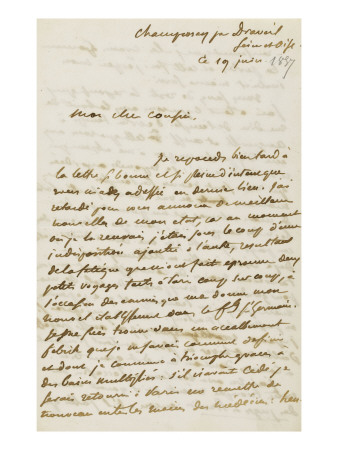 Champrosay par Draveil
Seine et Oise
Ce 19 juin 1857
Mon cher cousin.
Je réponds bien tard à
la lettre si bonne et si pleine d'intérêt que
vous m'avez adressé en dernier lieu. J'ai
retardé pour vous annoncer de meilleures
nouvelles de mon état car au moment
où je la recevais, j'étais sous le coup d'une
indisposition ajoutée à l'autre, résultat
de la fatigue que m'ont fait éprouver deux
petits voyages faits à Paris coup sur coup, à
l'occasion des ennuis que me donne mon
nouvel établissement dans le fg St Germain.
Je me suis trouvé dans un accablement
fébrile que je ne savais comment définir
et dont je commence à triompher grâce à
des bains multipliés: s'il n'avait cédé je
serais retourné à Paris me remettre de
nouveau entre les mains des médecins: